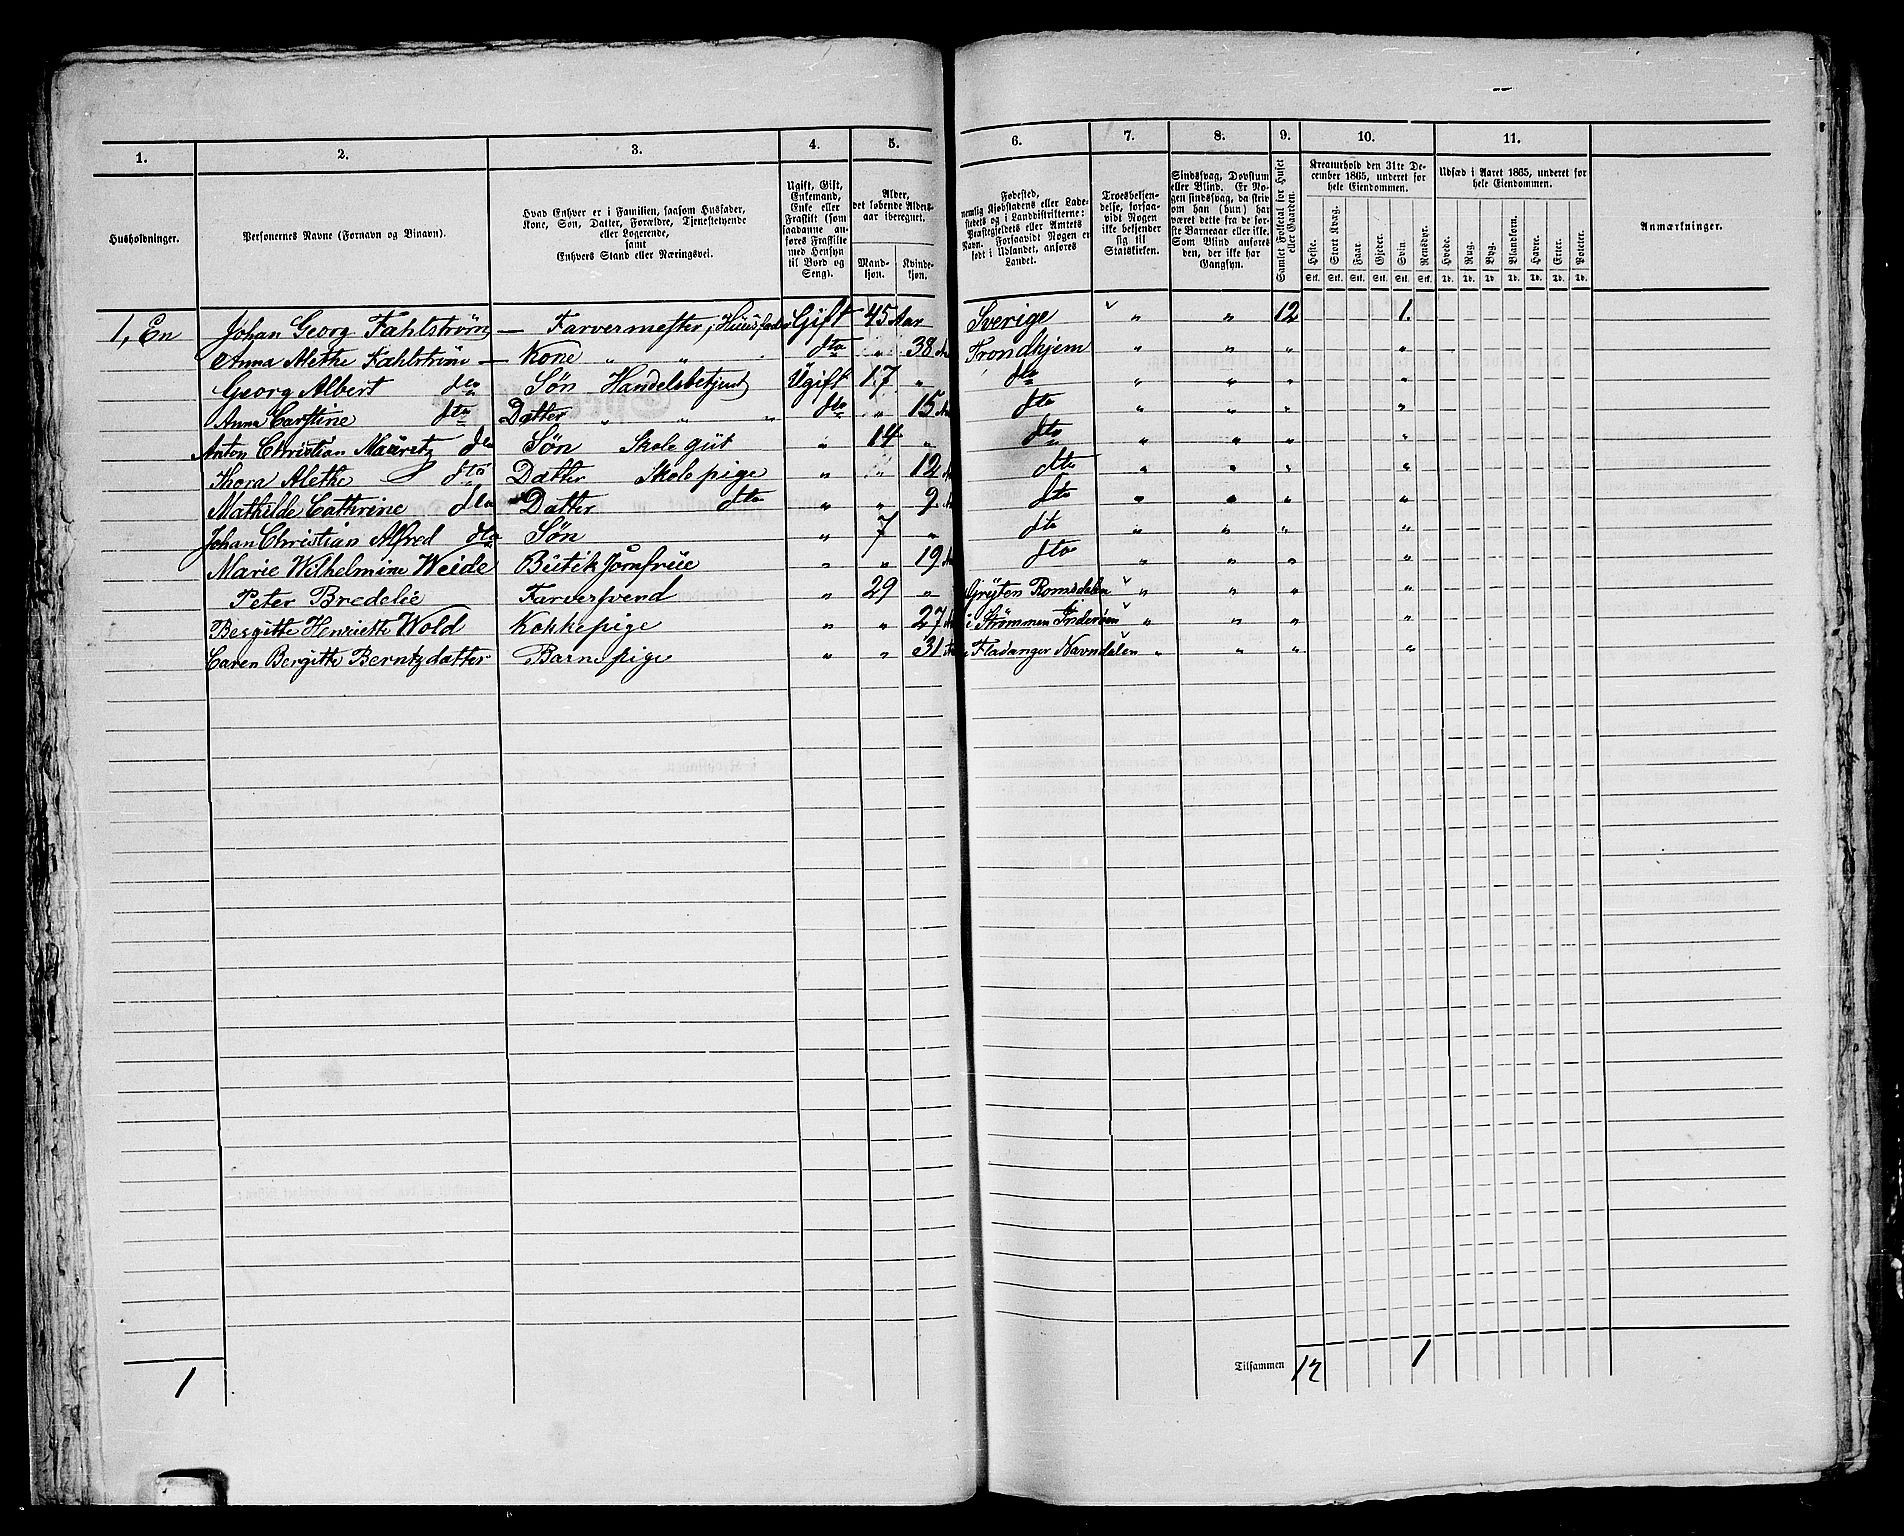 1. 2. 3. 4. 5. 6. 7. 8. 9. 10. 11.
Husholdninger.
Personernes Navne (Fornavn og Binavn).
Hvad Enhver er i Familien, saasom Husfader,
Kone, Søn, Datter, Forældre, Tjenestetyende
eller Logerende,
samt
Enhvers Stand eller Næringsvei.
Ugift, Gift,
Enkemand,
Enke eller
Fraskilt (som
saadanne an-
føres Fraskilte
med Hensyn
til Bord og
Seng).
Alder,
det løbende Alders-
aar iberegnet.
Mand-
kjøn.
Kvinde-
kjøn.
Fødested,
nemlig Kjøbstadens eller Lade-
stedets og i Landdistrikterne:
Præstegjeldets eller Amtets
Navn. Forsaavidt Nogen er
født i Udlandet, anføres
Landet.
Troesbekjen-
delse, forsaa-
vidt Nogen
ikke bekjender
sig til
Statskirken.
Sindssvag, Døvstum
eller Blind. Er No-
gen sindssvag, da skriv
om han (hun) har
været dette fra de før-
ste Barneaar eller ikke.
Som Blind anføres
den, der ikke har
Gangsyn.
Samlet Folketal for Huset
eller Gaarden.
Kreaturhold den 31te De-
cember 1865, underet for
hele Eiendommen.
Heste. Stort Kvæg. Faar. Gjeder. Svin. Rensdyr.
Stk. Stk. Stk. Stk. Stk. Stk.
Udsæd i Aaret 1865, underet for
hele Eiendommen.
Hvede. Rug. Byg. Blandkorn. Havre. Erter. Poteter.
Td. Td. Td. Td. Td. Td. Td.
Anmærkninger.
1, En Johan Georg Fahlstrøm — Farvermester, Huusfader Gift 45 Aar Sverige " " 12 1.
Anna Alethe Fahlstrøm — Kone " " dto " 38 Trondhjem " " " "
Georg Albert dto Søn Handelsbetjent Ugift 17 " dto " " " "
Anna Carstine dto Datter " " " dto " 15 dto " " " "
Anton Christian Mauretz dto Søn Skolegut " 14 " dto " " " "
Thora Alethe dto Datter Skolepige " " 12 dto " " " "
Mathilde Cathrine dto Datter dto " " 9 dto " " " "
Johan Christian Alfred dto Søn " 7 " dto " " " "
Marie Wilhelmine Weide Butik Jomfrue " " 19 dto " " " "
Peter Bredelie Farversvend " 29 " Gryten Romsdalen " " " "
Besgitte Henriette Wold Kokkepige " " 27 i Strømmen Inderøen " " " "
Caren Bergitte Berntzdatter Barnepige " " 31 Fladanger Navndalen " " " "
1 Tilsammen 12 1